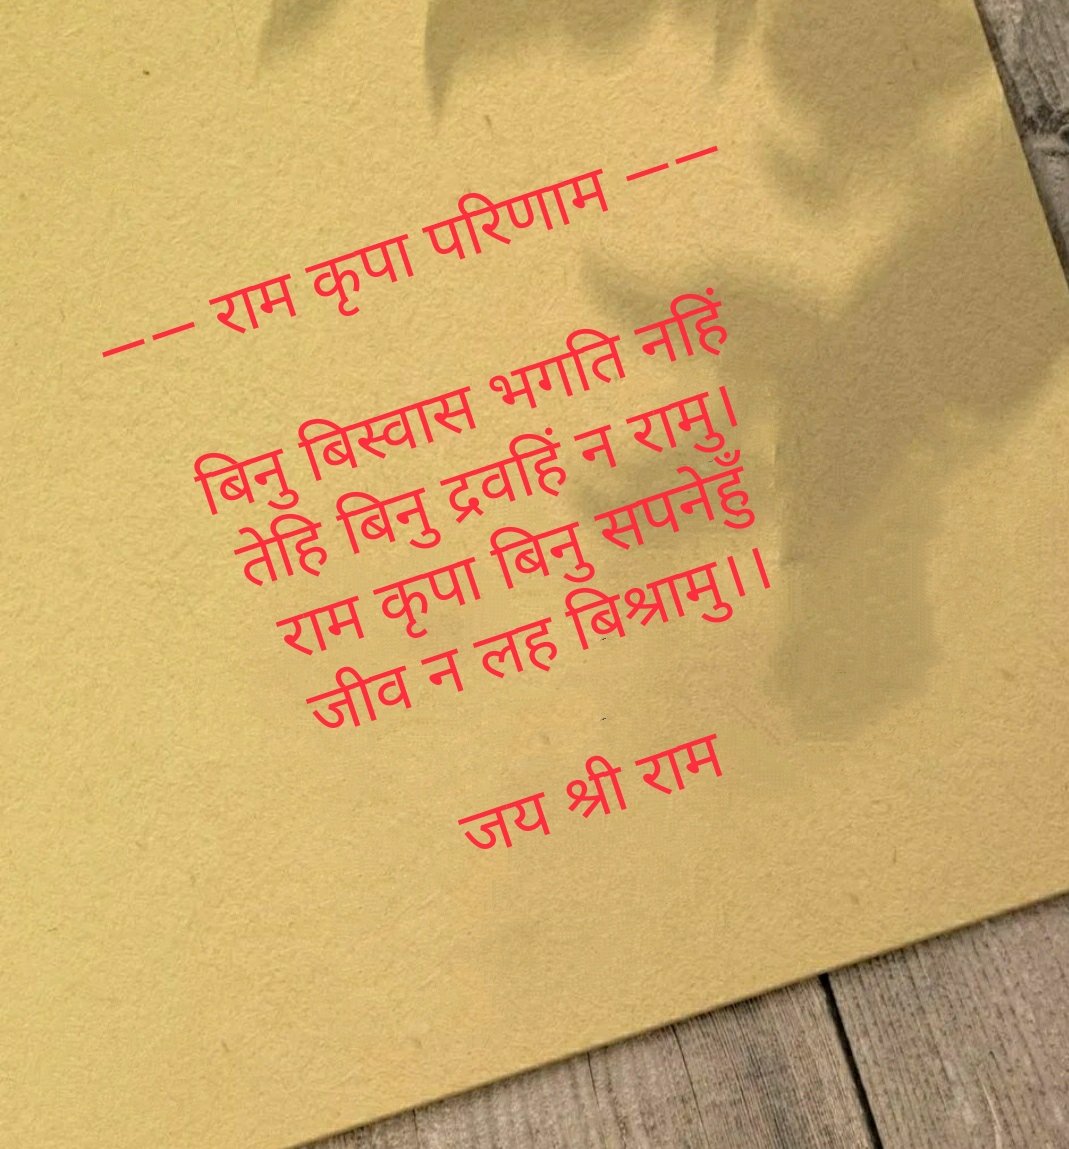 —— राम कृपा परिणाम ——
बिनु बिस्वास भगति नहिं
तेहि बिनु द्रवहिं न रामु।
राम कृपा बिनु सपनेहुँ
जीव न लह बिश्रामु।।
जय श्री राम